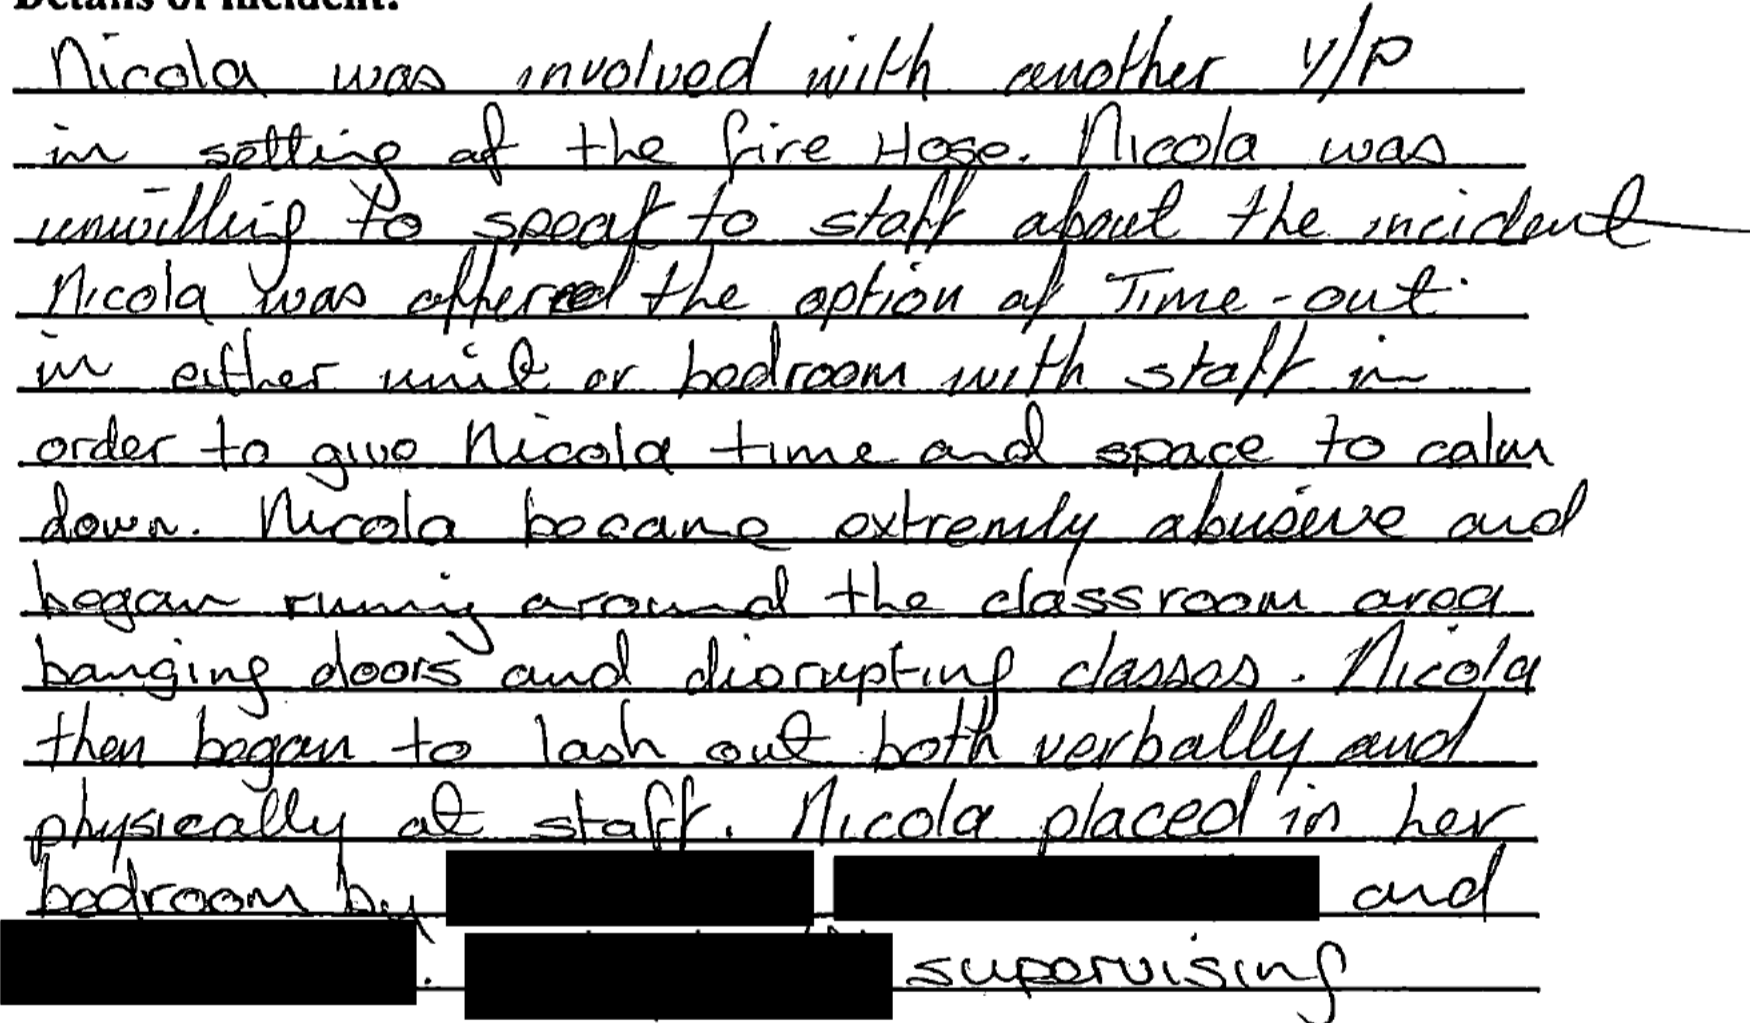 Details of incident:
Nicola was involved with another Y/P
in setting of the fire Hose. Nicola was
unwilling to speak to staff about the incident
Nicola was offered the option of Time-out
in either unit or bedroom with staff in
order to give Nicola time and space to calm
down. Nicola became extremly abusive and
began runing around the classroom area
banging doors and disrupting classes. Nicola
then began to lash out both verbally and
physically at staff. Nicola placed in her
bedroom by and
. supervising